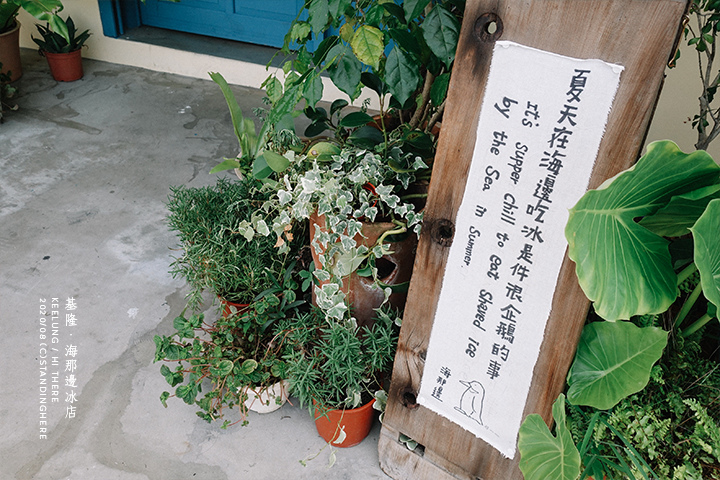 夏天在海邊吃冰是件很企鵝的事
it's supper chill to eat shaved ice
by the Sea in Summer.
海那邊
基隆・海那邊冰店
KEELUNG / HI THERE
2020/08 (C)STANDINGHERE